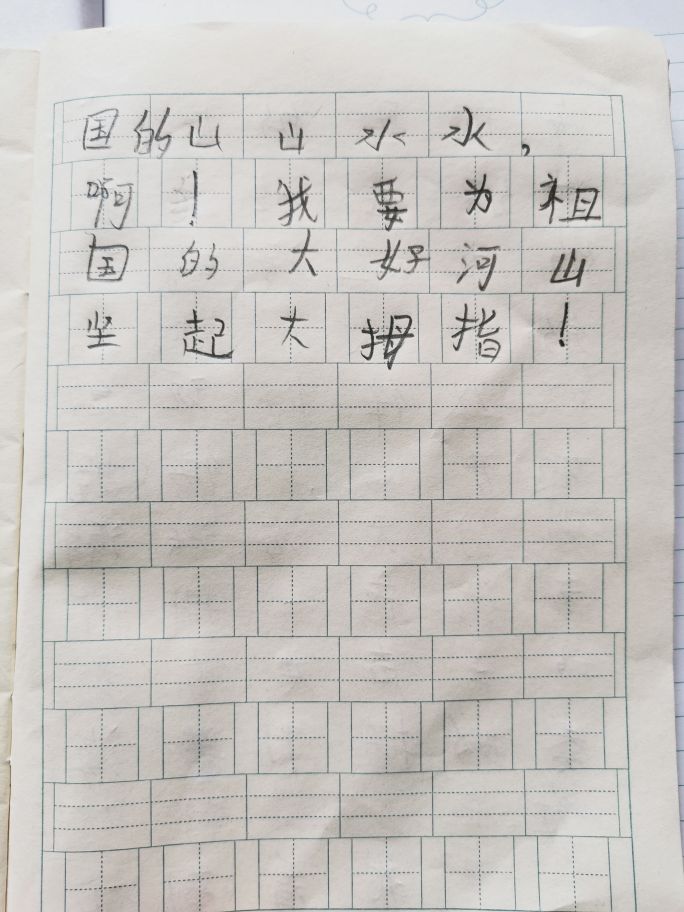 国的山山水水，
啊！我要为祖
国的大好河山
坚起大拇指！